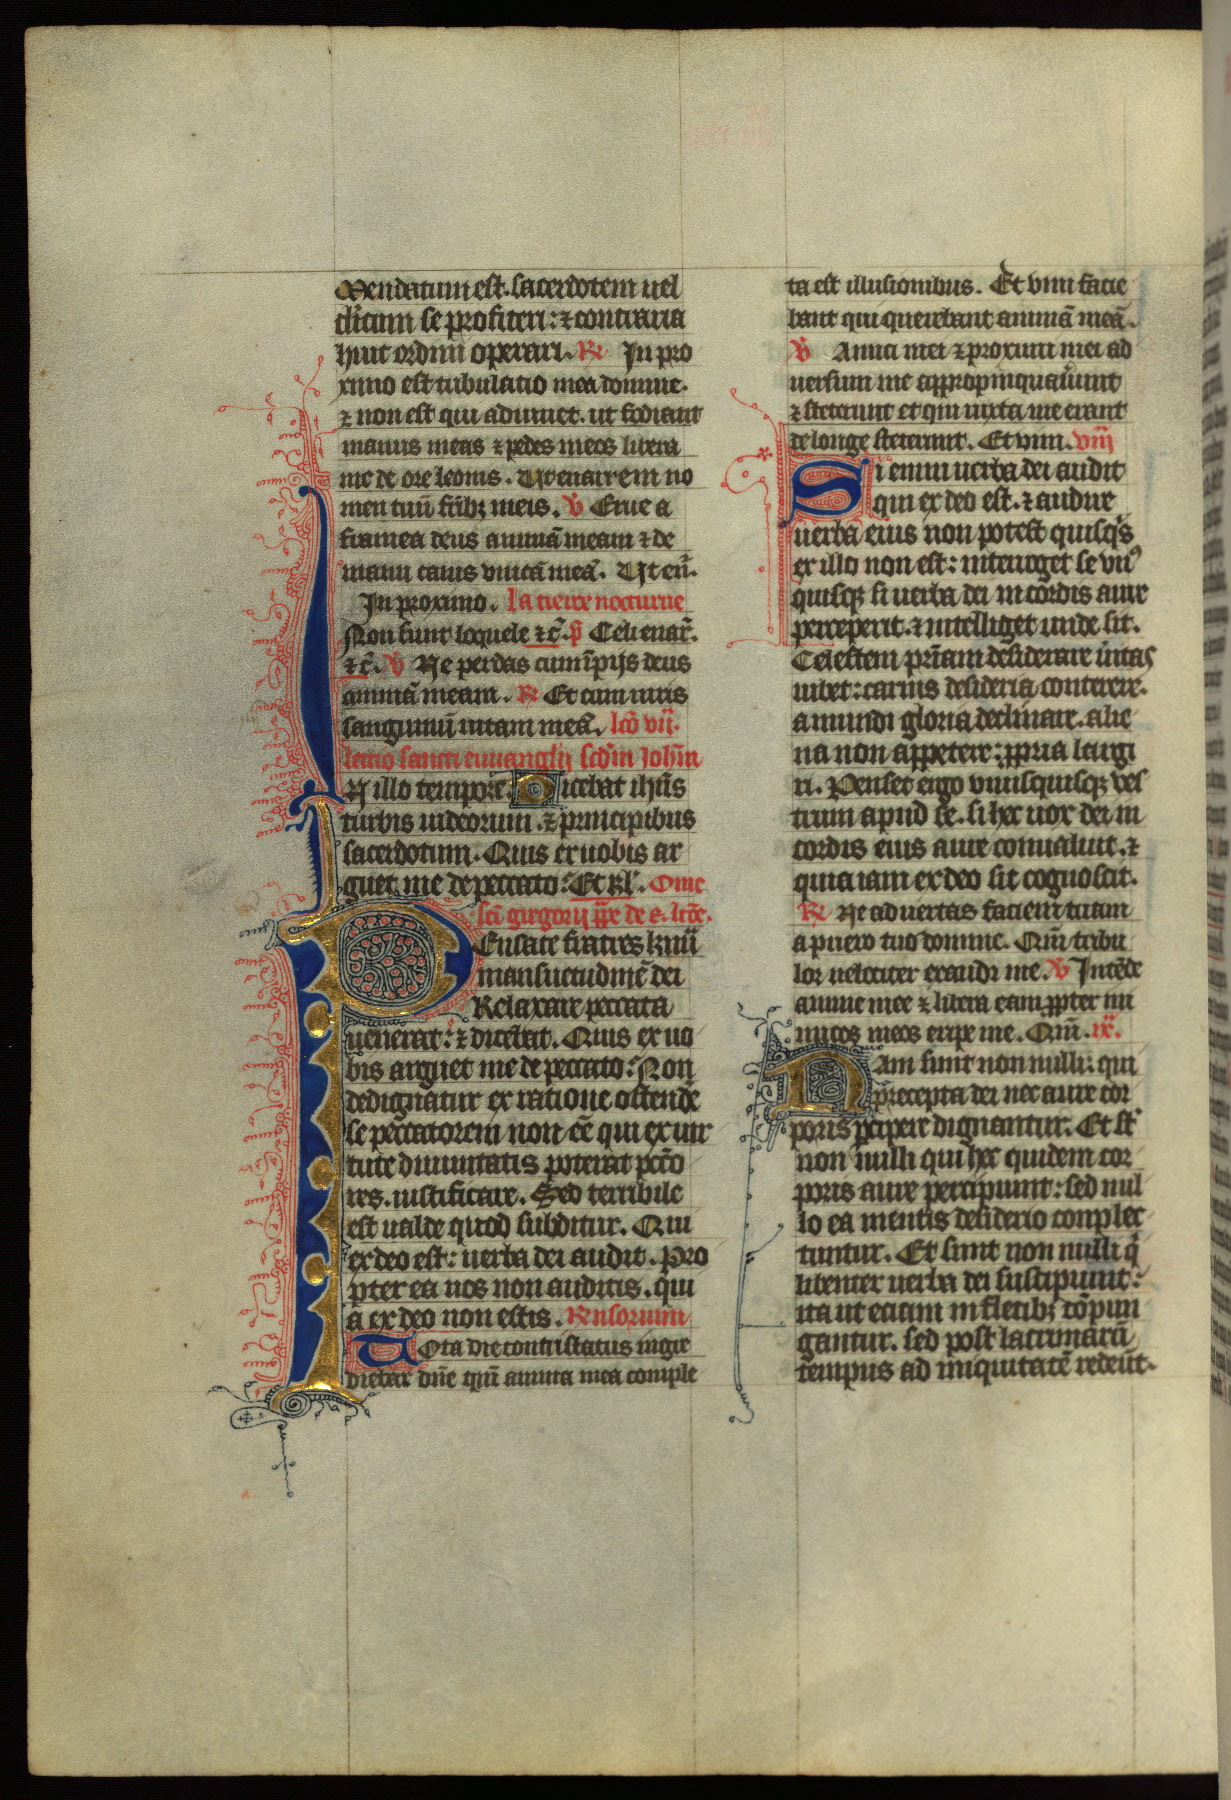 Mendatium est. sacerdotem uel
cl'icum se profiteri: ⁊ contraria
huic ordini operari. R̃ In pro
ximo est tribulatio mea domine.
⁊ non est qui adiuuet. ut fodiant
manus meas ⁊ pedes meos libera
me de ore leonis. Ut enarrem no
men tuū frībꝫ meis. v̄ Erue a
framea deus animā meam ⁊ de
manu canis vnicā meā. Ut en̄.
In proximo. la tierce nocturne
Non sunt loquele ⁊c̄. p̄ Celi enar̄.
⁊c̄. v̄ Ne perdas cum īpijs deus
animā meam. R̃ Et cum uiris
sanguinū uitam meā. lcō vij.
lectio sancti euuanglij scd̄m Joh̄m
N illo tempore. Dicebat ih̄us
turbis iudeorum. ⁊ principibus
sacerdotum. Quis ex uobis ar
guet me de peccato? Et Rl̄. Omē
sc̄i gregorij pp̄e de e. lcōe.
Ensate fratres kr̄mi
mansuetudinē dei
Relaxare peccata
uenerat: ⁊ dicebat. Quis ex uo
bis arguet me de peccato? Non
dedignatur ex ratione ostendē
se peccatorem non ēē qui ex uir
tute diuinitatis poterat pccō
res. iustificare. Sed terribile
est ualde quod subditur. Qui
ex deo est: uerba dei audit. Pro
pter ea uos non auditis. qui
a ex deo non estis. Rensorium
Tota die contristatus ingre
diebar dn̄e qm̄ anima mea comple
ta est illusionibus. Et vim facie
bant qui querebant animā meā.
v̄ Amici mei ⁊ proximi mei ad
uersum me appropinquauerunt
⁊ steterunt et qui iuxta me erant
de longe steterunt. Et vim. viij
Si enim uerba dei audit
qui ex deo est. ⁊ audire
uerba eius non potest quisq's
ex illo non est: interroget se vn9
quisqꝫ si uerba dei in cordis aure
perceperit. ⁊ intelliget unde sit.
Celestem pr̄iam desiderare ūitas
iubet: carnis desideria conterere.
a mundi gloria declinare. alie
na non appetere: ꝓpria largi
ri. Penset ergo vnusquisqꝫ ves
trum apud se. si hec uox dei in
cordis eius aure conualuit. ⁊
quia iam ex deo sit cognoscit.
R̃ Ne aduertas faciem tuam
a puero tuo domine. Qm̄ tribu
lor uelociter exaudi me. v̄ Intēde
anime mee ⁊ libera eam ꝓpter ini
micos meos eripe me. Qm̄. ix.
Nam sunt non nulli: qui
precepta dei nec aure cor
poris ꝑcipere dignantur. Et st̄
non nulli qui hec quidem cor
poris aure percipiunt: sed nul
lo ea mentis desiderio complec
tuntur. Et sunt non nulli q̄
libenter uerba dei suscipiunt:
ita ut etiam in fletibꝫ cōpun
gantur. sed post lacrimarū
tempus ad iniquitatē redeūt.